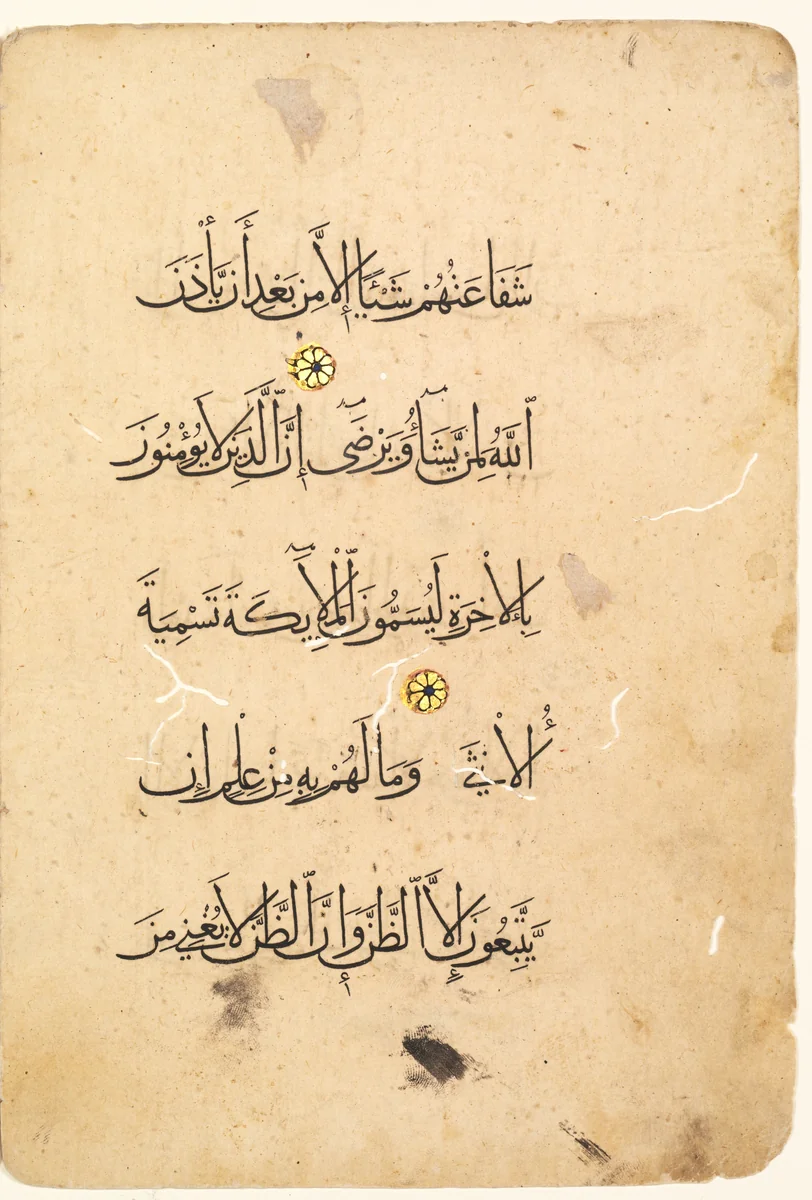 شَفَاعَتُهُمْ شَيْئًا إِلَّا مِنْ بَعْدِ أَن يَأْذَنَ
ٱللَّهُ لِمَن يَّشَآءُ وَيَرْضَىٓ إِنَّ ٱلَّذِينَ لَا يُؤْمِنُونَ
بِالْأَخِرَةِ لَيُسَمُّونَ ٱلْمَلَآئِكَةَ تَسْمِيَةَ
ٱلْأُنثَى وَمَا لَهُمْ بِهِ مِنْ عِلْمٍ إِن
يَّتَّبِعُونَ إِلَّا ٱلظَّنَّ وَإِنَّ ٱلظَّنَّ لَا يُغْنِي مِنَ